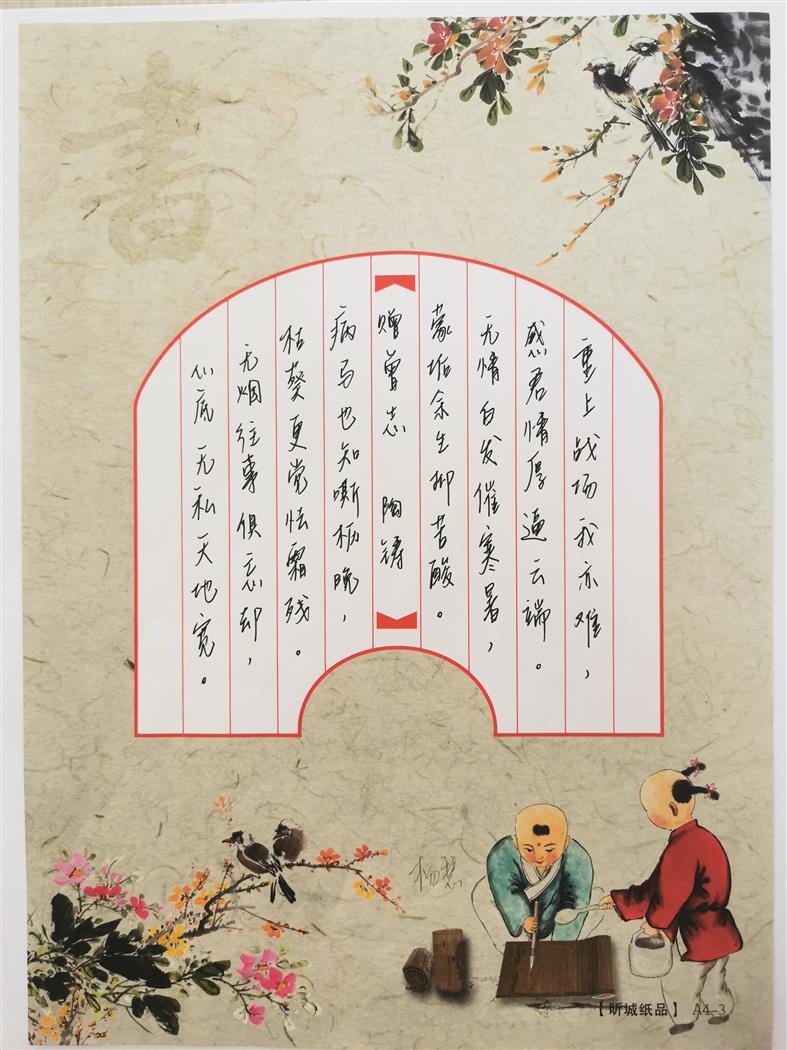 書
重上战场我亦难，
感君情厚逼云端。
无情白发催寒暑，
蒙垢余生抑苦酸。
赠曾志 陶铸
病马也知嘶枥晚，
枯葵更觉怯霜残。
无烟往事俱忘却，
心底无私天地宽。
杨慧
【昕城纸品】 A4-3